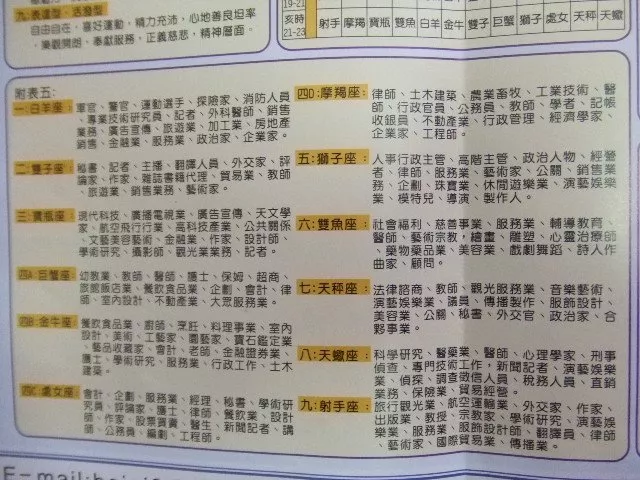 九:表達型、活潑型
自由自在，喜好運動，精力充沛，心地善良坦率
，樂觀開朗、奉獻服務，正義慈悲，精神層面。
19-21
亥時
21-23
射手 摩羯 寶瓶 雙魚 白羊 金牛 雙子 巨蟹 獅子 處女 天秤 天蠍
附表五:
一:白羊座:軍官、警官、運動選手、探險家、消防人員
、專業技術研究員、記者、外科醫師、銷售
業務、廣告宣傳、旅遊業、加工業、房地產
銷售、金融業、服務業、政治家、企業家。
二:雙子座:秘書、記者、主播、翻譯人員、外交家、評
論家、作家、雜誌書籍代理、貿易業、教師
、旅遊業、銷售業務、藝術家。
三:寶瓶座:現代科技、廣播電視業、廣告宣傳、天文學
家、航空飛行行業、高科技產業、公共關係
、文藝美容藝術、金融業、作家、設計師、
學術研究、攝影師、觀光業業務、記者。
四A:巨蟹座:幼教業、教師、醫師、護士、保姆、超商、
旅館飯店業、餐飲食品業、企劃、會計、律
師、室內設計、不動產業、大眾服務業。
四B:金牛座:餐飲食品業、廚師、烹飪、料理事業、室內
設計、美術、工藝家、園藝家、寶石鑑定業
、藝品收藏家、會計、老師、金融證券業、
護士、學術研究、服務業、行政工作、土木
建築。
四C:處女座:會計、企劃、服務業、經理、秘書、學術研
究員、評論家、護士、律師、餐飲業、設計
師、作家、股票買賣、醫生、新聞記者、講
師、公務員、編劇、工程師。
四D:摩羯座:律師、土木建築、農業畜牧、工業技術、醫
師、行政官員、公務員、教師、學者、記帳
收銀員、不動產業、行政管理、經濟學家、
企業家、工程師。
五:獅子座:人事行政主管、高階主管、政治人物、經營
者、律師、服務業、藝術家、公關、銷售業
務、企劃、珠寶業、休閒遊樂業、演藝娛樂
業、模特兒、導演、製作人。
六:雙魚座:社會福利、慈善事業、服務業、輔導教育、
醫師、藝術宗教，繪畫、雕塑、心靈治療師
、藥物藥品業、美容業、戲劇舞蹈、詩人作
曲家、顧問。
七:天秤座:法律諮商、教師、觀光服務業、音樂藝術、
演藝娛樂業、議員、傳播製作、服飾設計、
美容業、公關、秘書、外交官、政治家、合
夥事業。
八:天蠍座:科學研究、醫藥業、醫師、心理學家、刑事
偵查、專門技術工作，新聞記者、演藝娛樂
業、偵探、調查徵信人員、稅務人員、直銷
業務、保險業、貿易經營。
九:射手座:旅行觀光業、航空運輸業、外交家、作家、
出版業、教授、宗教家、學術研究、演藝娛
樂業、服務業、服飾設計師、翻譯員、律師
、藝術家、國際貿易業、傳播業。
E-mail: